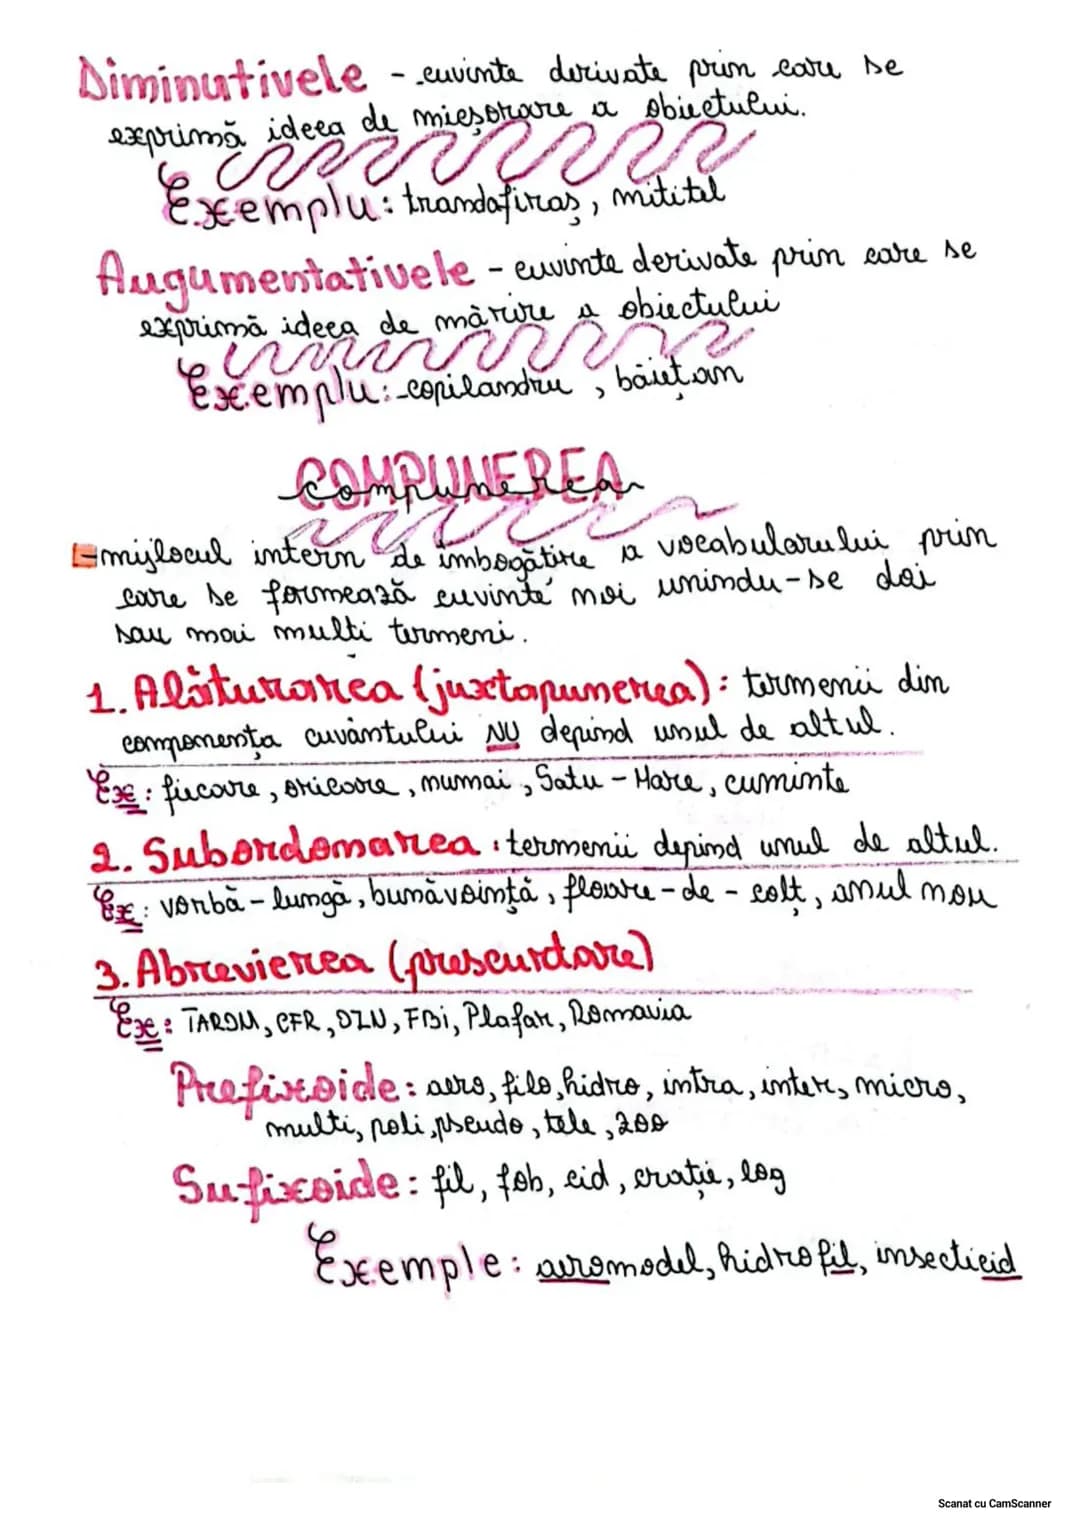 Diminutivele - cuvinte derivate prin care se
exprimă ideea de micșorare a obiectului.
Exemplu: trandafiraș, mititel
Augumentativele - cuvinte derivate prin care se
exprimă ideea de mărire a obiectului
Exemplu: copilandru, băiețan
COMPUNEREA
-mijlocul intern de îmbogățire a vocabularului prin
care se formează cuvinte noi unindu-se doi
sau mai multi termeni.
1. Alăturarea (juxtapunerea): termenii din
componența cuvântului NU depind unul de altul.
Ex: fiecare, oricare, numai, Satu-Mare, cuminte
2. Subordonarea: termenii depind unul de altul.
Ex: vorbă-lungă, bunăvoință, floare-de-colț, anul nou
3. Abrevierea (prescurtare)
Ex: TAROM, CFR, OZN, FBi, Plafar, Romavia
Prefixoide: aero, filo, hidro, intra, inter, micro,
multi, poli, pseudo, tele, zoo
Sufixoide: fil, fob, cid, crație, log
Exemple: aeromodel, hidrofil, insecticid
Scanat cu CamScanner